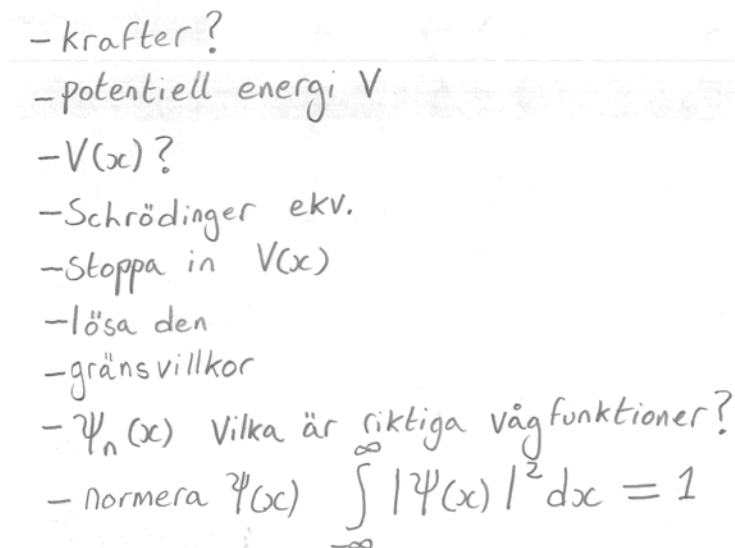 - krafter?
- potentiell energi V
- V(x)?
- Schrödinger ekv.
- Stoppa in V(x)
- lösa den
- gränsvillkor
- Ψₙ(x) Vilka är riktiga vågfunktioner?
- normera Ψ(x) ∫_{-∞}^{∞} |Ψ(x)|² dx = 1